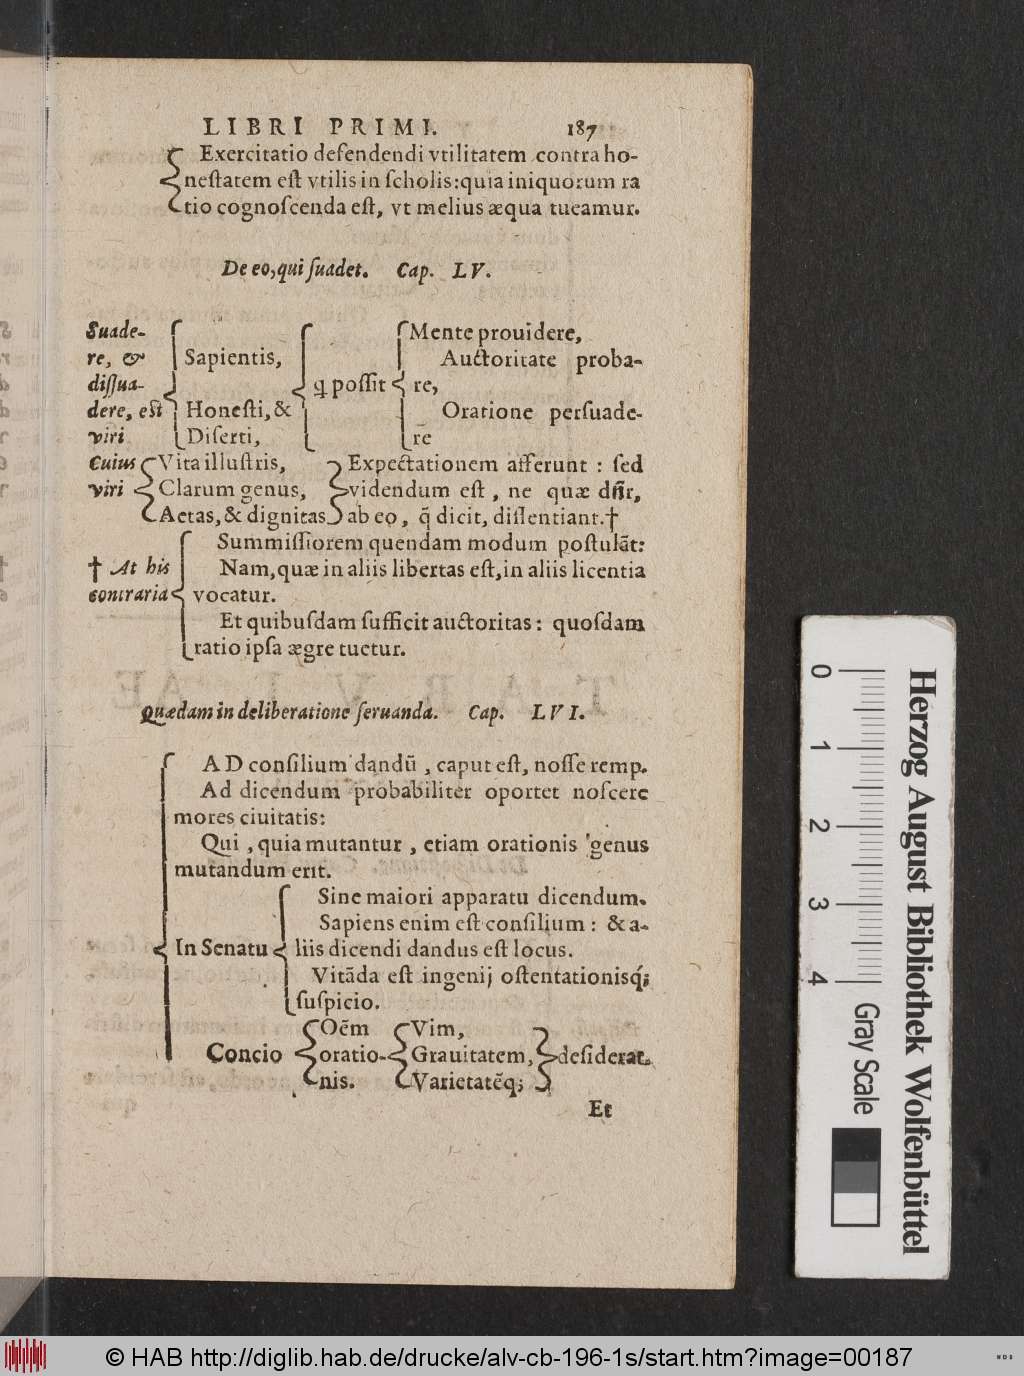 LIBRI PRIMI. 187
Exercitatio defendendi vtilitatem contra ho-
neſtatem eſt vtilis in ſcholis: quia iniquorum ra
tio cognoſcenda eſt, vt melius æqua tueamur.
De eo, qui ſuadet. Cap. LV.
Suade-
re, &
diſſua-
dere, eſt
viri
Sapientis,
Honeſti, &
Diſerti,
ꝗ poſſit
Mente prouidere,
Auctoritate proba-
re,
Oratione perſuade-
re
Cuius
viri
Vita illuſtris,
Clarum genus,
Aetas, & dignitas
Expectationem afferunt : ſed
videndum eſt, ne quæ dn̄r,
ab eo, q̃ dicit, diſſentiant. †
† At his
contraria
Summiſſiorem quendam modum poſtulãt:
Nam, quæ in aliis libertas eſt, in aliis licentia
vocatur.
Et quibuſdam ſufficit auctoritas: quoſdam
ratio ipſa ægre tuetur.
Quædam in deliberatione ſeruanda. Cap. LVI.
AD conſilium dandũ, caput eſt, noſſe remp.
Ad dicendum probabiliter oportet noſcere
mores ciuitatis:
Qui, quia mutantur, etiam orationis genus
mutandum erit.
In Senatu
Sine maiori apparatu dicendum.
Sapiens enim eſt conſilium: & a-
liis dicendi dandus eſt locus.
Vitãda eſt ingenij oſtentationisq́;
ſuſpicio.
Concio
Oẽm
oratio-
nis.
Vim,
Grauitatem,
Varietatẽq;
deſiderat.
Et
Herzog August Bibliothek Wolfenbüttel
0 1 2 3 4 Gray Scale
© HAB http://diglib.hab.de/drucke/alv-cb-196-1s/start.htm?image=00187